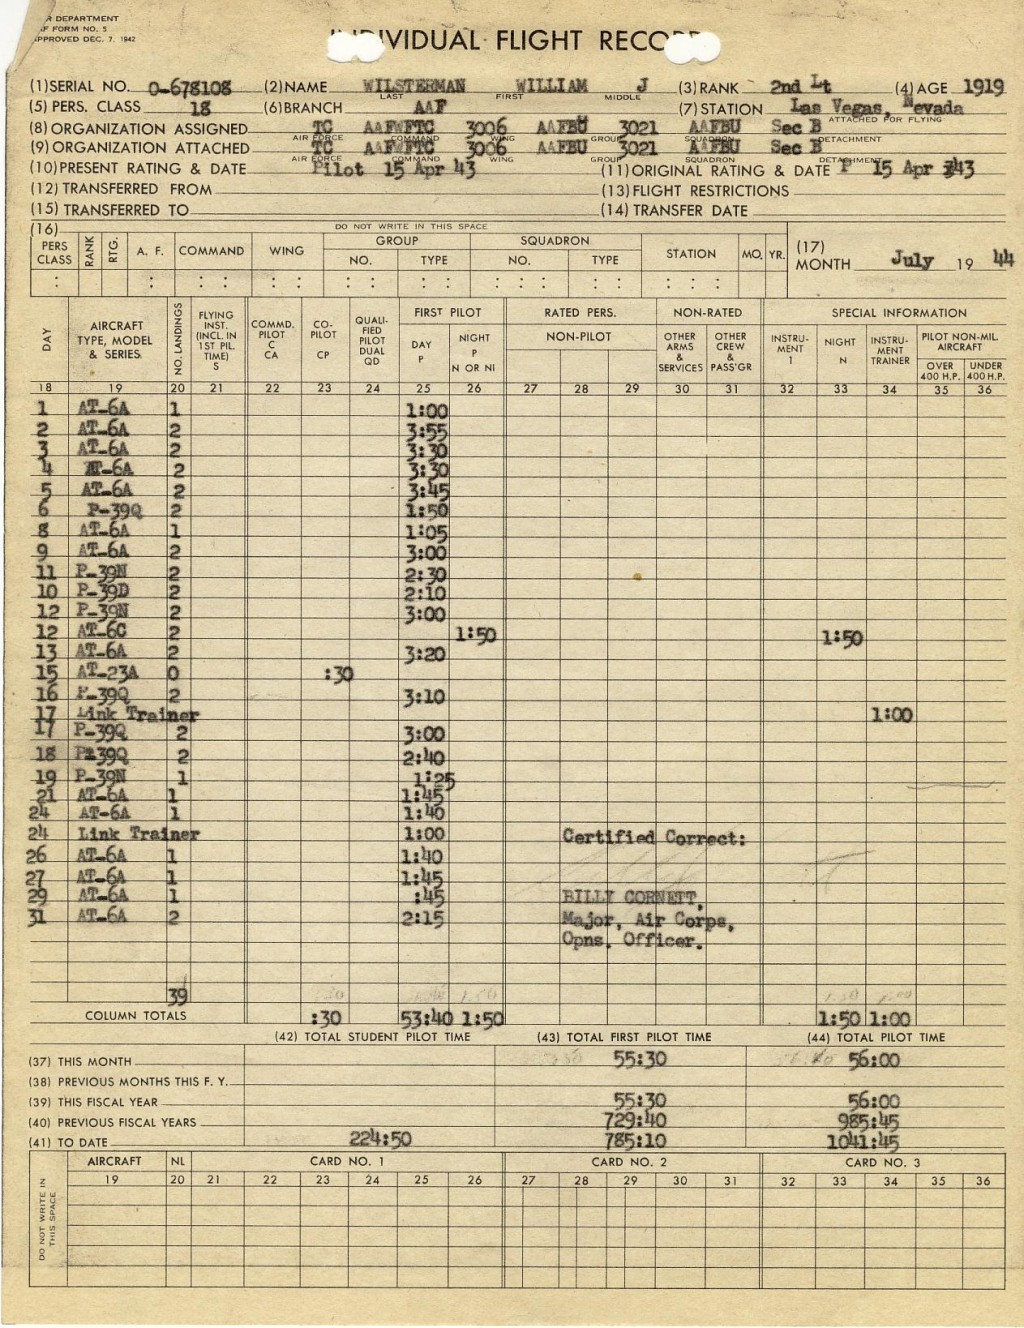 R DEPARTMENT
AF FORM NO. 5
APPROVED DEC. 7, 1942
INDIVIDUAL FLIGHT RECORD
(1) SERIAL NO. O-678108 (2) NAME WILSTERMAN WILLIAM J (3) RANK 2nd Lt (4) AGE 1919
LAST FIRST MIDDLE
(5) PERS. CLASS 18 (6) BRANCH AAF (7) STATION Las Vegas, Nevada
ATTACHED FOR FLYING
(8) ORGANIZATION ASSIGNED TC AAFWFTC 3006 AAFBU 3021 AAFBU Sec B
AIR FORCE COMMAND WING GROUP SQUADRON DETACHMENT
(9) ORGANIZATION ATTACHED TC AAFWFTC 3006 AAFBU 3021 AAFBU Sec B
AIR FORCE COMMAND WING GROUP SQUADRON DETACHMENT
(10) PRESENT RATING & DATE Pilot 15 Apr 43 (11) ORIGINAL RATING & DATE P 15 Apr 43
(12) TRANSFERRED FROM (13) FLIGHT RESTRICTIONS
(15) TRANSFERRED TO (14) TRANSFER DATE
(16) DO NOT WRITE IN THIS SPACE
PERS CLASS RANK RTG. A. F. COMMAND WING GROUP NO. TYPE SQUADRON NO. TYPE STATION MO. YR. (17) MONTH July 19 44
DAY AIRCRAFT TYPE, MODEL & SERIES NO. LANDINGS FLYING INST. (INCL. IN 1ST PIL. TIME) S COMMD. PILOT C CA CO-PILOT CP QUALIFIED PILOT DUAL QD FIRST PILOT DAY P NIGHT P N OR NI RATED PERS. NON-PILOT NON-RATED OTHER ARMS & SERVICES OTHER CREW & PASS'GR SPECIAL INFORMATION INSTRUMENT I NIGHT N INSTRUMENT TRAINER PILOT NON-MIL. AIRCRAFT OVER 400 H.P. UNDER 400 H.P.
18 19 20 21 22 23 24 25 26 27 28 29 30 31 32 33 34 35 36
1 AT-6A 1 1:00
2 AT-6A 2 3:55
3 AT-6A 2 3:30
4 AT-6A 2 3:30
5 AT-6A 2 3:45
6 P-39Q 2 1:50
8 AT-6A 1 1:05
9 AT-6A 2 3:00
11 P-39N 2 2:30
10 P-39D 2 2:10
12 P-39N 2 3:00
12 AT-6C 2 1:50 1:50
13 AT-6A 2 3:20
15 AT-23A 0 :30
16 P-39Q 2 3:10
17 Link Trainer 1:00
17 P-39Q 2 3:00
18 P-39Q 2 2:40
19 P-39N 1 1:25
21 AT-6A 1 1:45
24 AT-6A 1 1:40
24 Link Trainer 1:00 Certified Correct:
26 AT-6A 1 1:40
27 AT-6A 1 1:45
29 AT-6A 1 :45 BILLY CORNETT,
31 AT-6A 2 2:15 Major, Air Corps,
Opns. Officer.
39
COLUMN TOTALS :30 53:40 1:50 1:50 1:00
(42) TOTAL STUDENT PILOT TIME (43) TOTAL FIRST PILOT TIME (44) TOTAL PILOT TIME
(37) THIS MONTH 55:30 56:00
(38) PREVIOUS MONTHS THIS F. Y.
(39) THIS FISCAL YEAR 55:30 56:00
(40) PREVIOUS FISCAL YEARS 729:40 985:45
(41) TO DATE 224:50 785:10 1041:45
DO NOT WRITE IN THIS SPACE
AIRCRAFT NL CARD NO. 1 CARD NO. 2 CARD NO. 3
19 20 21 22 23 24 25 26 27 28 29 30 31 32 33 34 35 36